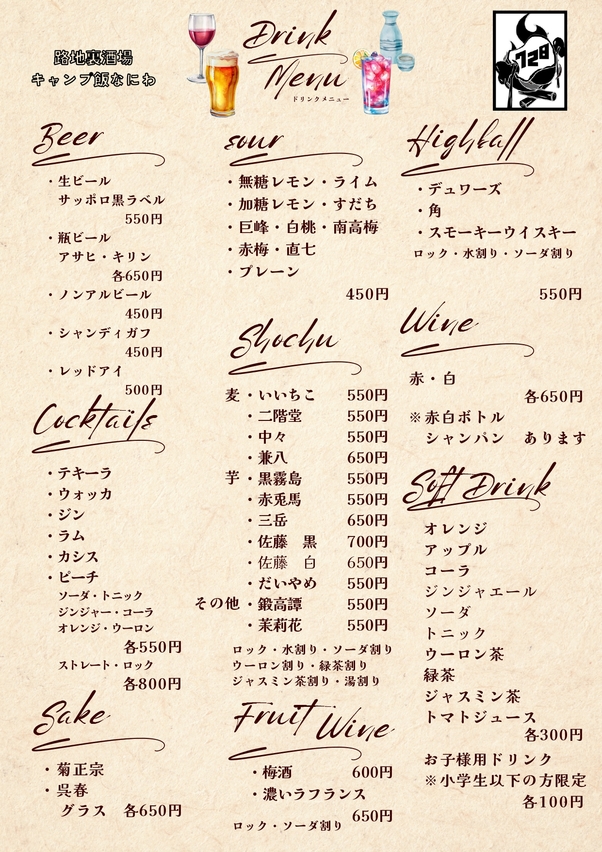 路地裏酒場
キャンプ飯なにわ
Drink
Menu
ドリンクメニュー
728
Beer
・生ビール
サッポロ黒ラベル
550円
・瓶ビール
アサヒ・キリン
各650円
・ノンアルビール
450円
・シャンディガフ
450円
・レッドアイ
500円
Cocktails
・テキーラ
・ウォッカ
・ジン
・ラム
・カシス
・ピーチ
ソーダ・トニック
ジンジャー・コーラ
オレンジ・ウーロン
各550円
ストレート・ロック
各800円
Sake
・菊正宗
・呉春
グラス 各650円
sour
・無糖レモン・ライム
・加糖レモン・すだち
・巨峰・白桃・南高梅
・赤梅・直七
・プレーン
450円
Shochu
麦・いいちこ 550円
・二階堂 550円
・中々 550円
・兼八 650円
芋・黒霧島 550円
・赤兎馬 550円
・三岳 650円
・佐藤 黒 700円
・佐藤 白 650円
・だいやめ 550円
その他・鍛高譚 550円
・茉莉花 550円
ロック・水割り・ソーダ割り
ウーロン割り・緑茶割り
ジャスミン茶割り・湯割り
Fruit Wine
・梅酒 600円
・濃いラフランス
650円
ロック・ソーダ割り
Highball
・デュワーズ
・角
・スモーキーウイスキー
ロック・水割り・ソーダ割り
550円
Wine
赤・白
各650円
※赤白ボトル
シャンパン あります
Soft Drink
オレンジ
アップル
コーラ
ジンジャエール
ソーダ
トニック
ウーロン茶
緑茶
ジャスミン茶
トマトジュース
各300円
お子様用ドリンク
※小学生以下の方限定
各100円